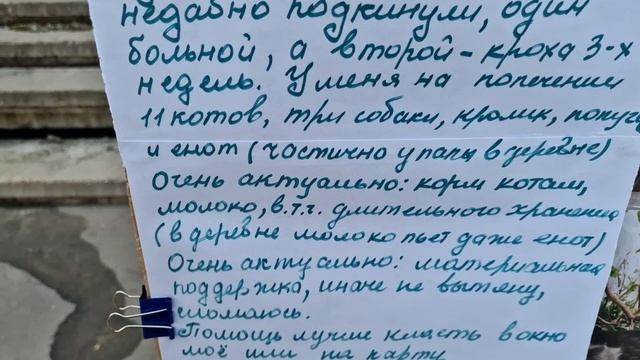 недавно подкинули, один
больной, а второй - кроха 3-х
недель. У меня на попечении
11 котов, три собаки, кролик, попуга
и енот (частично у папы в деревне)
Очень актуально: корм котам,
молоко, в.т.ч. длительного хранения
(в деревне молоко пьет даже енот)
Очень актуально: материальная
поддержка, иначе не вытяну,
сломаюсь.
Помощь лучше класть в окно
моё или на карту